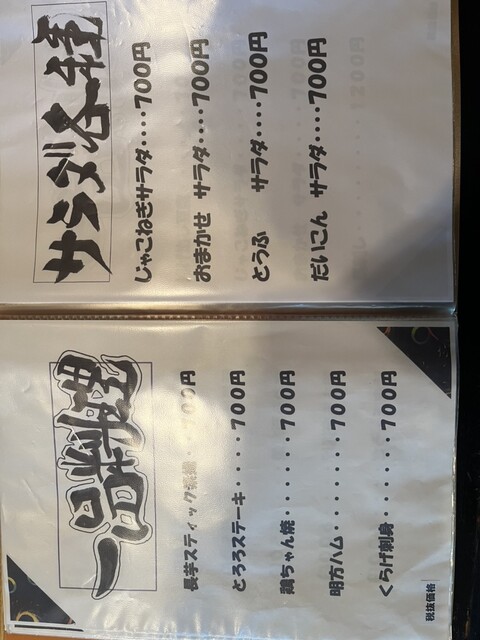 サラダ各種
じゃこねぎサラダ････700円
おまかせ サラダ････700円
とうふ サラダ････700円
だいこん サラダ････700円
一品料理
長芋スティック 700円
とろろステーキ･････700円
鶏ちゃん焼･･･････700円
明方ハム････････700円
くらげ刺身･･･････700円
税抜価格